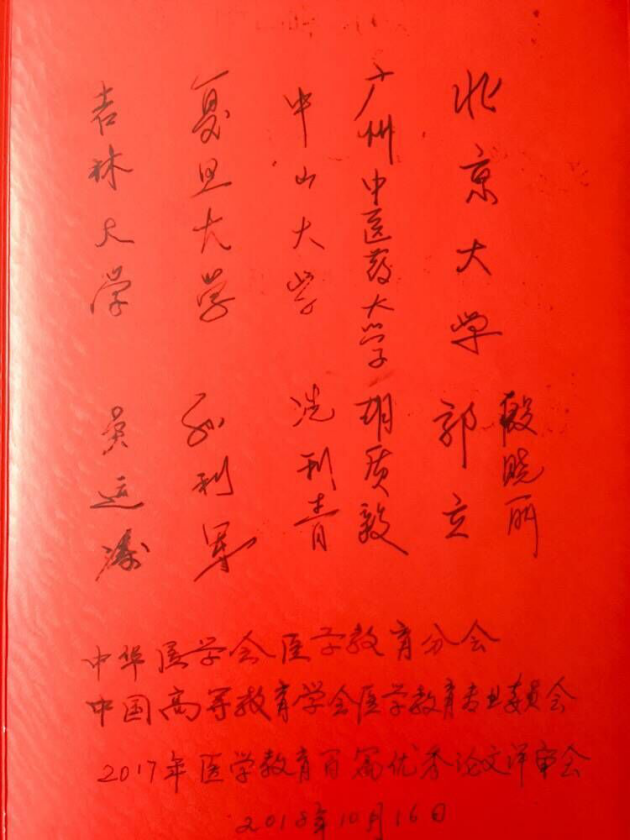 北京大学 郭立
殷晓丽
广州中医药大学
中山大学 冼利青
复旦大学 孙利军
吉林大学
中华医学会医学教育分会
中国高等教育学会医学教育专业委员会
2017年医学教育百篇优秀论文评审会
2018年10月16日